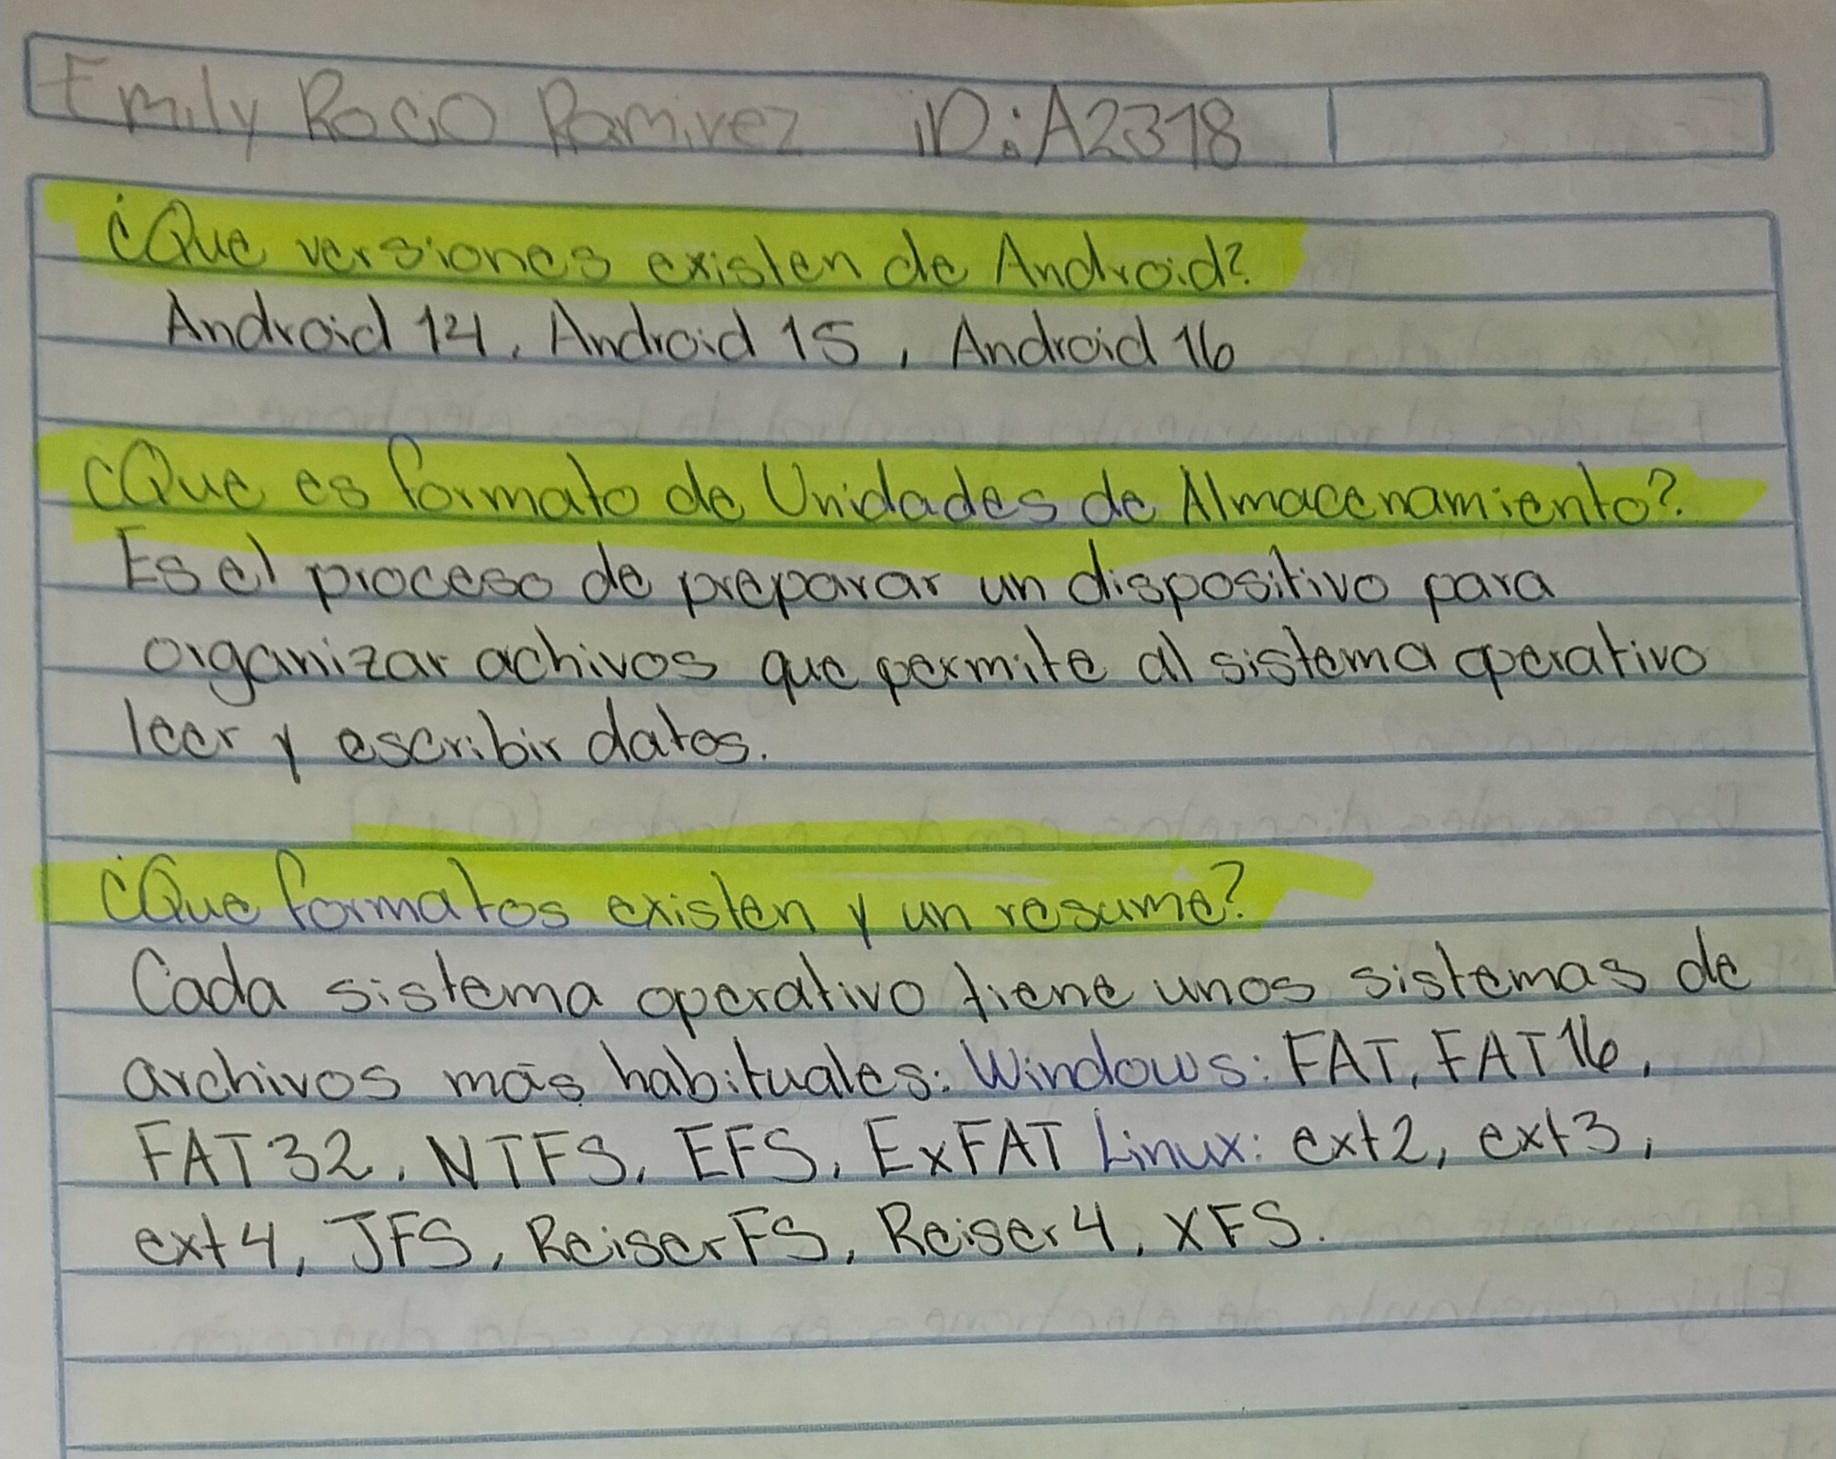 Emily Rocio Ramirez iD:A2318
¿Que versiones existen de Android?
Android 14, Android 15, Android 16
¿Que es formato de Unidades de Almacenamiento?
Es el proceso de preparar un dispositivo para
organizar achivos que permite al sistema operativo
leer y escribir datos.
¿Que formatos existen y un resume?
Cada sistema operativo tiene unos sistemas de
archivos más habituales: Windows: FAT, FAT16,
FAT32, NTFS, EFS, ExFAT Linux: ext2, ext3,
ext4, JFS, ReiserFS, Reiser4, XFS.